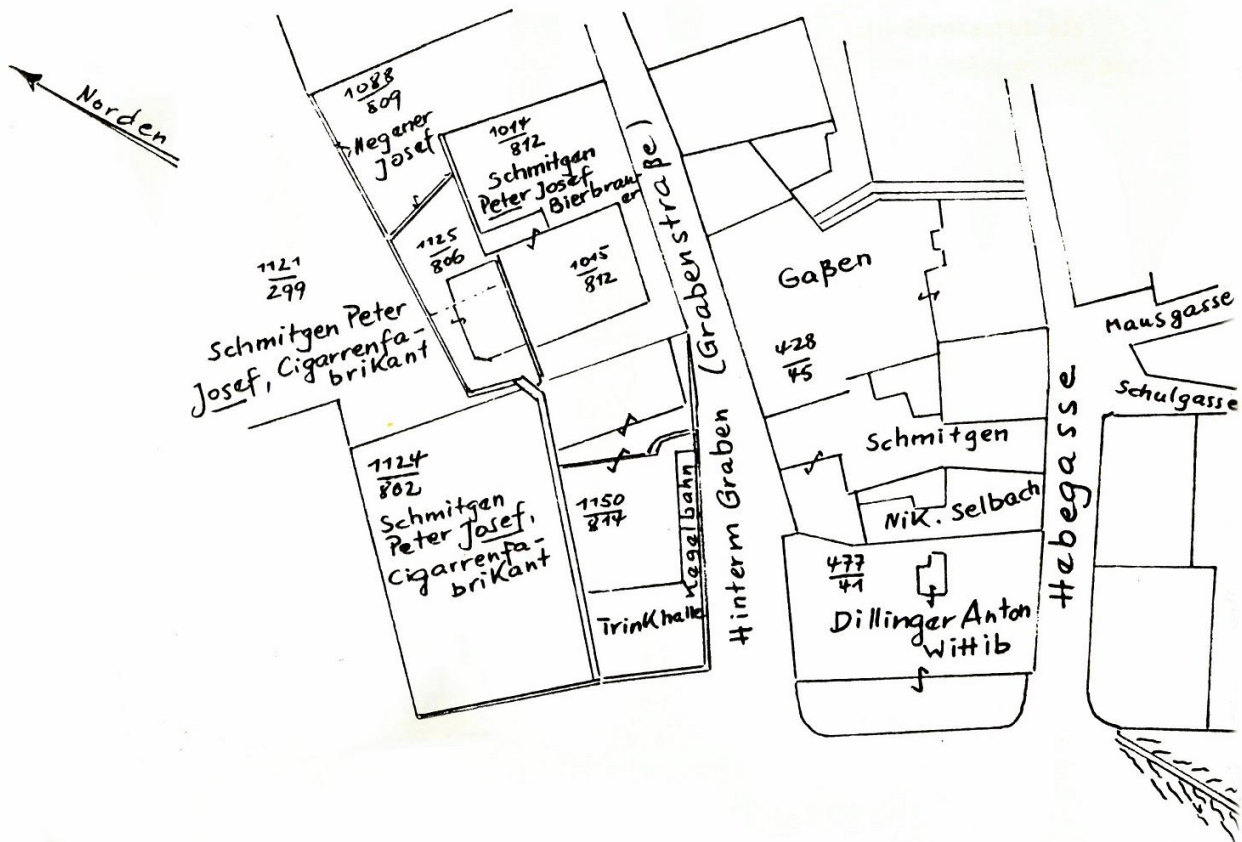 Norden
1088
809
Meganer
Josef
1014
812
Schmitgen
Peter Josef
Bierbrau-
er
1125
806
1015
812
1121
299
Schmitgen Peter
Josef, Cigarrenfa-
brikant
1124
802
Schmitgen
Peter Josef,
Cigarrenfa-
brikant
1150
814
Kegelbahn
Trinkhalle
Hinterm Graben (Grabenstraße)
Gaßen
428
45
Schmitgen
Nik. Selbach
477
41
Dillinger Anton
Wittib
Habegasse
Mausgasse
Schulgasse